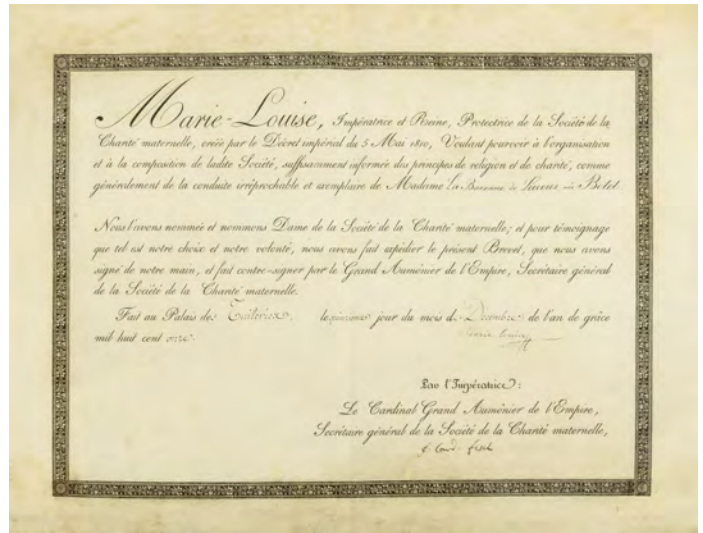 Marie-Louise, Impératrice et Reine, Protectrice de la Société de la
Charité maternelle, créée par le Décret impérial du 5 Mai 1810, Voulant pourvoir à l'organisation
et à la composition de ladite Société, suffisamment informée des principes de religion et de charité, comme
généralement de la conduite irréprochable et exemplaire de Madame La Baronne de
Nous l'avons nommée et nommons Dame de la Société de la Charité maternelle; et pour témoignage
que tel est notre choix et notre volonté, nous avons fait expédier le présent Brevet, que nous avons
signé de notre main, et fait contre-signer par le Grand Aumônier de l'Empire, Secrétaire général
de la Société de la Charité maternelle.
Fait au Palais des Tuileries, le jour du mois de Décembre de l'an de grâce
mil huit cent onze.
Marie Louise
Par l'Impératrice:
Le Cardinal Grand Aumônier de l'Empire,
Secrétaire général de la Société de la Charité maternelle,
Card. Fesch